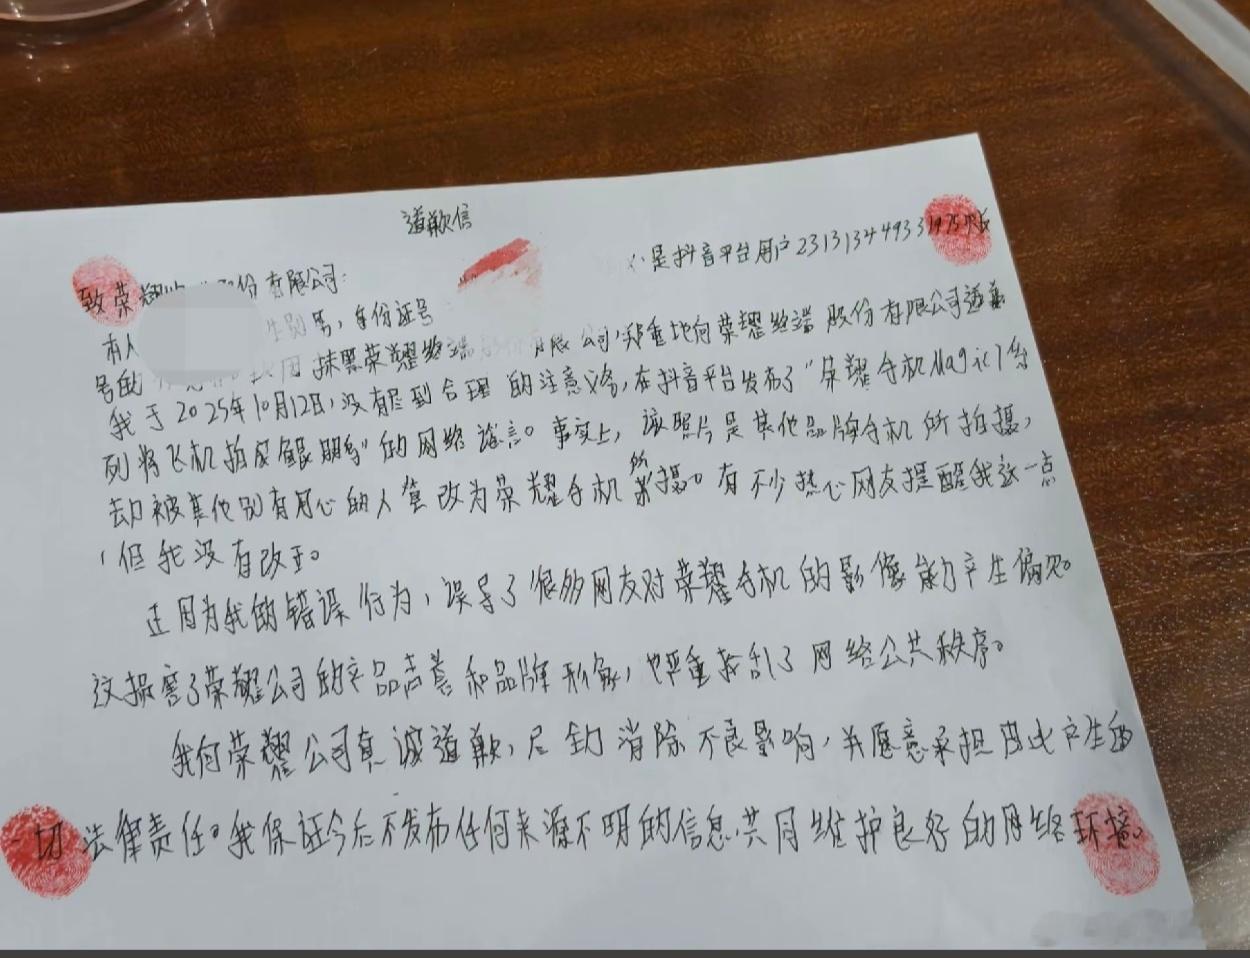 道歉信
致荣耀 股份有限公司:
本人 性别男,身份证号 是抖音平台用户2313134493319757账
号的 抹黑荣耀终端 有限公司,郑重地向荣耀终端股份有限公司道歉
我于2025年10月12日,没有尽到合理的注意义务,在抖音平台发布了“荣耀手机Magic7系
列将飞机拍成鲲鹏”的网络谣言。事实上,该照片是其他品牌手机所拍摄,
却被其他别有用心的人篡改为荣耀手机所摄。有不少热心网友提醒我这一点
,但我没有改正。
正因为我的错误行为,误导了很多网友对荣耀手机的影像能力产生偏见。
这损害了荣耀公司的产品声誉和品牌形象,也严重扰乱了网络公共秩序。
我向荣耀公司真诚道歉,尽力消除不良影响,并愿意承担因此产生的
一切法律责任。我保证今后不发布任何来源不明的信息,共同维护良好的网络环境。